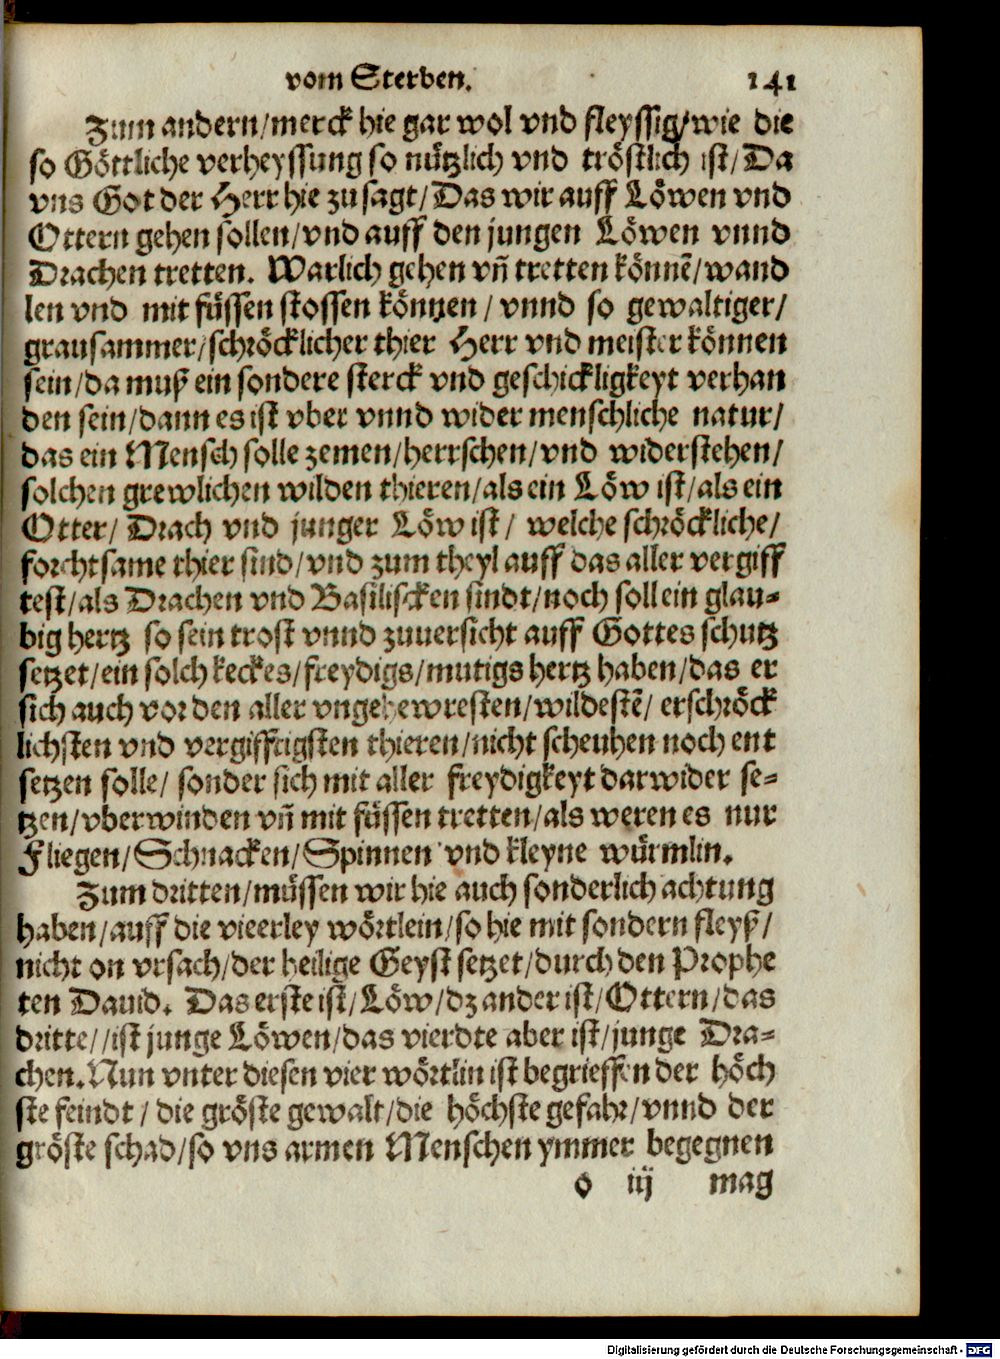 vom Sterben. 141
Zum andern/merck hie gar wol vnd fleyssig/wie die
so Göttliche verheyssung so nützlich vnd tröstlich ist/Da
vns Got der Herr hie zu sagt/Das wir auff Löwen vnd
Ottern gehen sollen/vnd auff den jungen Löwen vnnd
Drachen tretten. Warlich gehen vñ tretten könnẽ/wand
len vnd mit füssen stossen können/ vnnd so gewaltiger/
grausammer/schröcklicher thier Herr vnd meister können
sein/da muß ein sondere sterck vnd geschickligkeyt verhan
den sein/dann es ist vber vnnd wider menschliche natur/
das ein Mensch solle zemen/herrschen/vnd widerstehen/
solchen grewlichen wilden thieren/als ein Löw ist/als ein
Otter/ Drach vnd junger Löw ist/ welche schröckliche/
forchtsame thier sind/vnd zum theyl auff das aller vergiff
test/als Drachen vnd Basiliscken sindt/noch soll ein glau-
big hertz so sein trost vnnd zuuersicht auff Gottes schutz
setzet/ein solch keckes/freydigs/mutigs hertz haben/das er
sich auch vor den aller vngehewresten/wildestẽ/ erschröck
lichsten vnd vergifftigsten thieren/nicht scheuhen noch ent
setzen solle/ sonder sich mit aller freydigkeyt darwider se-
tzen/vberwinden vñ mit füssen tretten/als weren es nur
Fliegen/Schnacken/Spinnen vnd kleyne würmlin.
Zum dritten/müssen wir hie auch sonderlich achtung
haben/auff die vieerley wörtlein/so hie mit sondern fleyß/
nicht on vrsach/der heilige Geyst setzet/durch den Prophe
ten Dauid. Das erste ist/Löw/dz ander ist/Ottern/das
dritte//ist junge Löwen/das vierdte aber ist/junge Dra-
chen. Nun vnter diesen vier wörtlin ist begrieffen der höch
ste feindt/ die gröste gewalt/die höchste gefahr/vnnd der
gröste schad/so vns armen Menschen ymmer begegnen
o iij mag
Digitalisierung gefördert durch die Deutsche Forschungsgemeinschaft - DFG